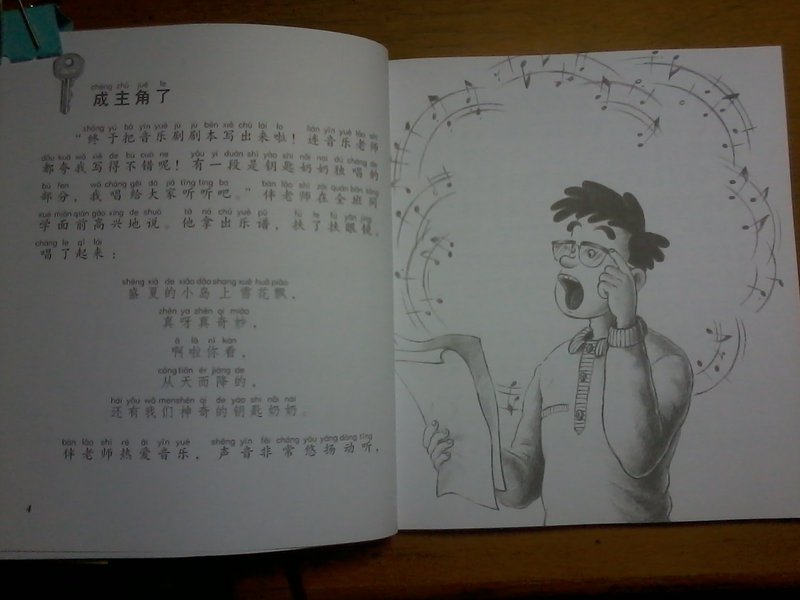 chéng zhǔ jué le
成主角了
zhōng yú bǎ yīn yuè jù jù běn xiě chū lái la lián yīn yuè lǎo shī
“终于把音乐剧剧本写出来啦！连音乐老师
dōu kuā wǒ xiě de bú cuò ne yǒu yí duàn shì yào shi nǎi nai dú chàng de
都夸我写得不错呢！有一段是钥匙奶奶独唱的
bù fen wǒ chàng gěi dà jiā tīng ting ba bàn lǎo shī zài quán bān tóng
部分，我唱给大家听听吧。”伴老师在全班同
xué miàn qián gāo xìng de shuō tā ná chū yuè pǔ fú le fú yǎn jìng
学面前高兴地说。他拿出乐谱，扶了扶眼镜，
chàng le qǐ lái
唱了起来：
shèng xià de xiǎo dǎo shang xuě huā piāo
盛夏的小岛上雪花飘，
zhēn ya zhēn qí miào
真呀真奇妙，
ā lā nǐ kàn
啊啦你看，
cóng tiān ér jiàng de
从天而降的，
hái yǒu wǒ men shén qí de yào shi nǎi nai
还有我们神奇的钥匙奶奶。
bàn lǎo shī rè ài yīn yuè shēng yīn fēi cháng yōu yáng dòng tīng
伴老师热爱音乐，声音非常悠扬动听，
4